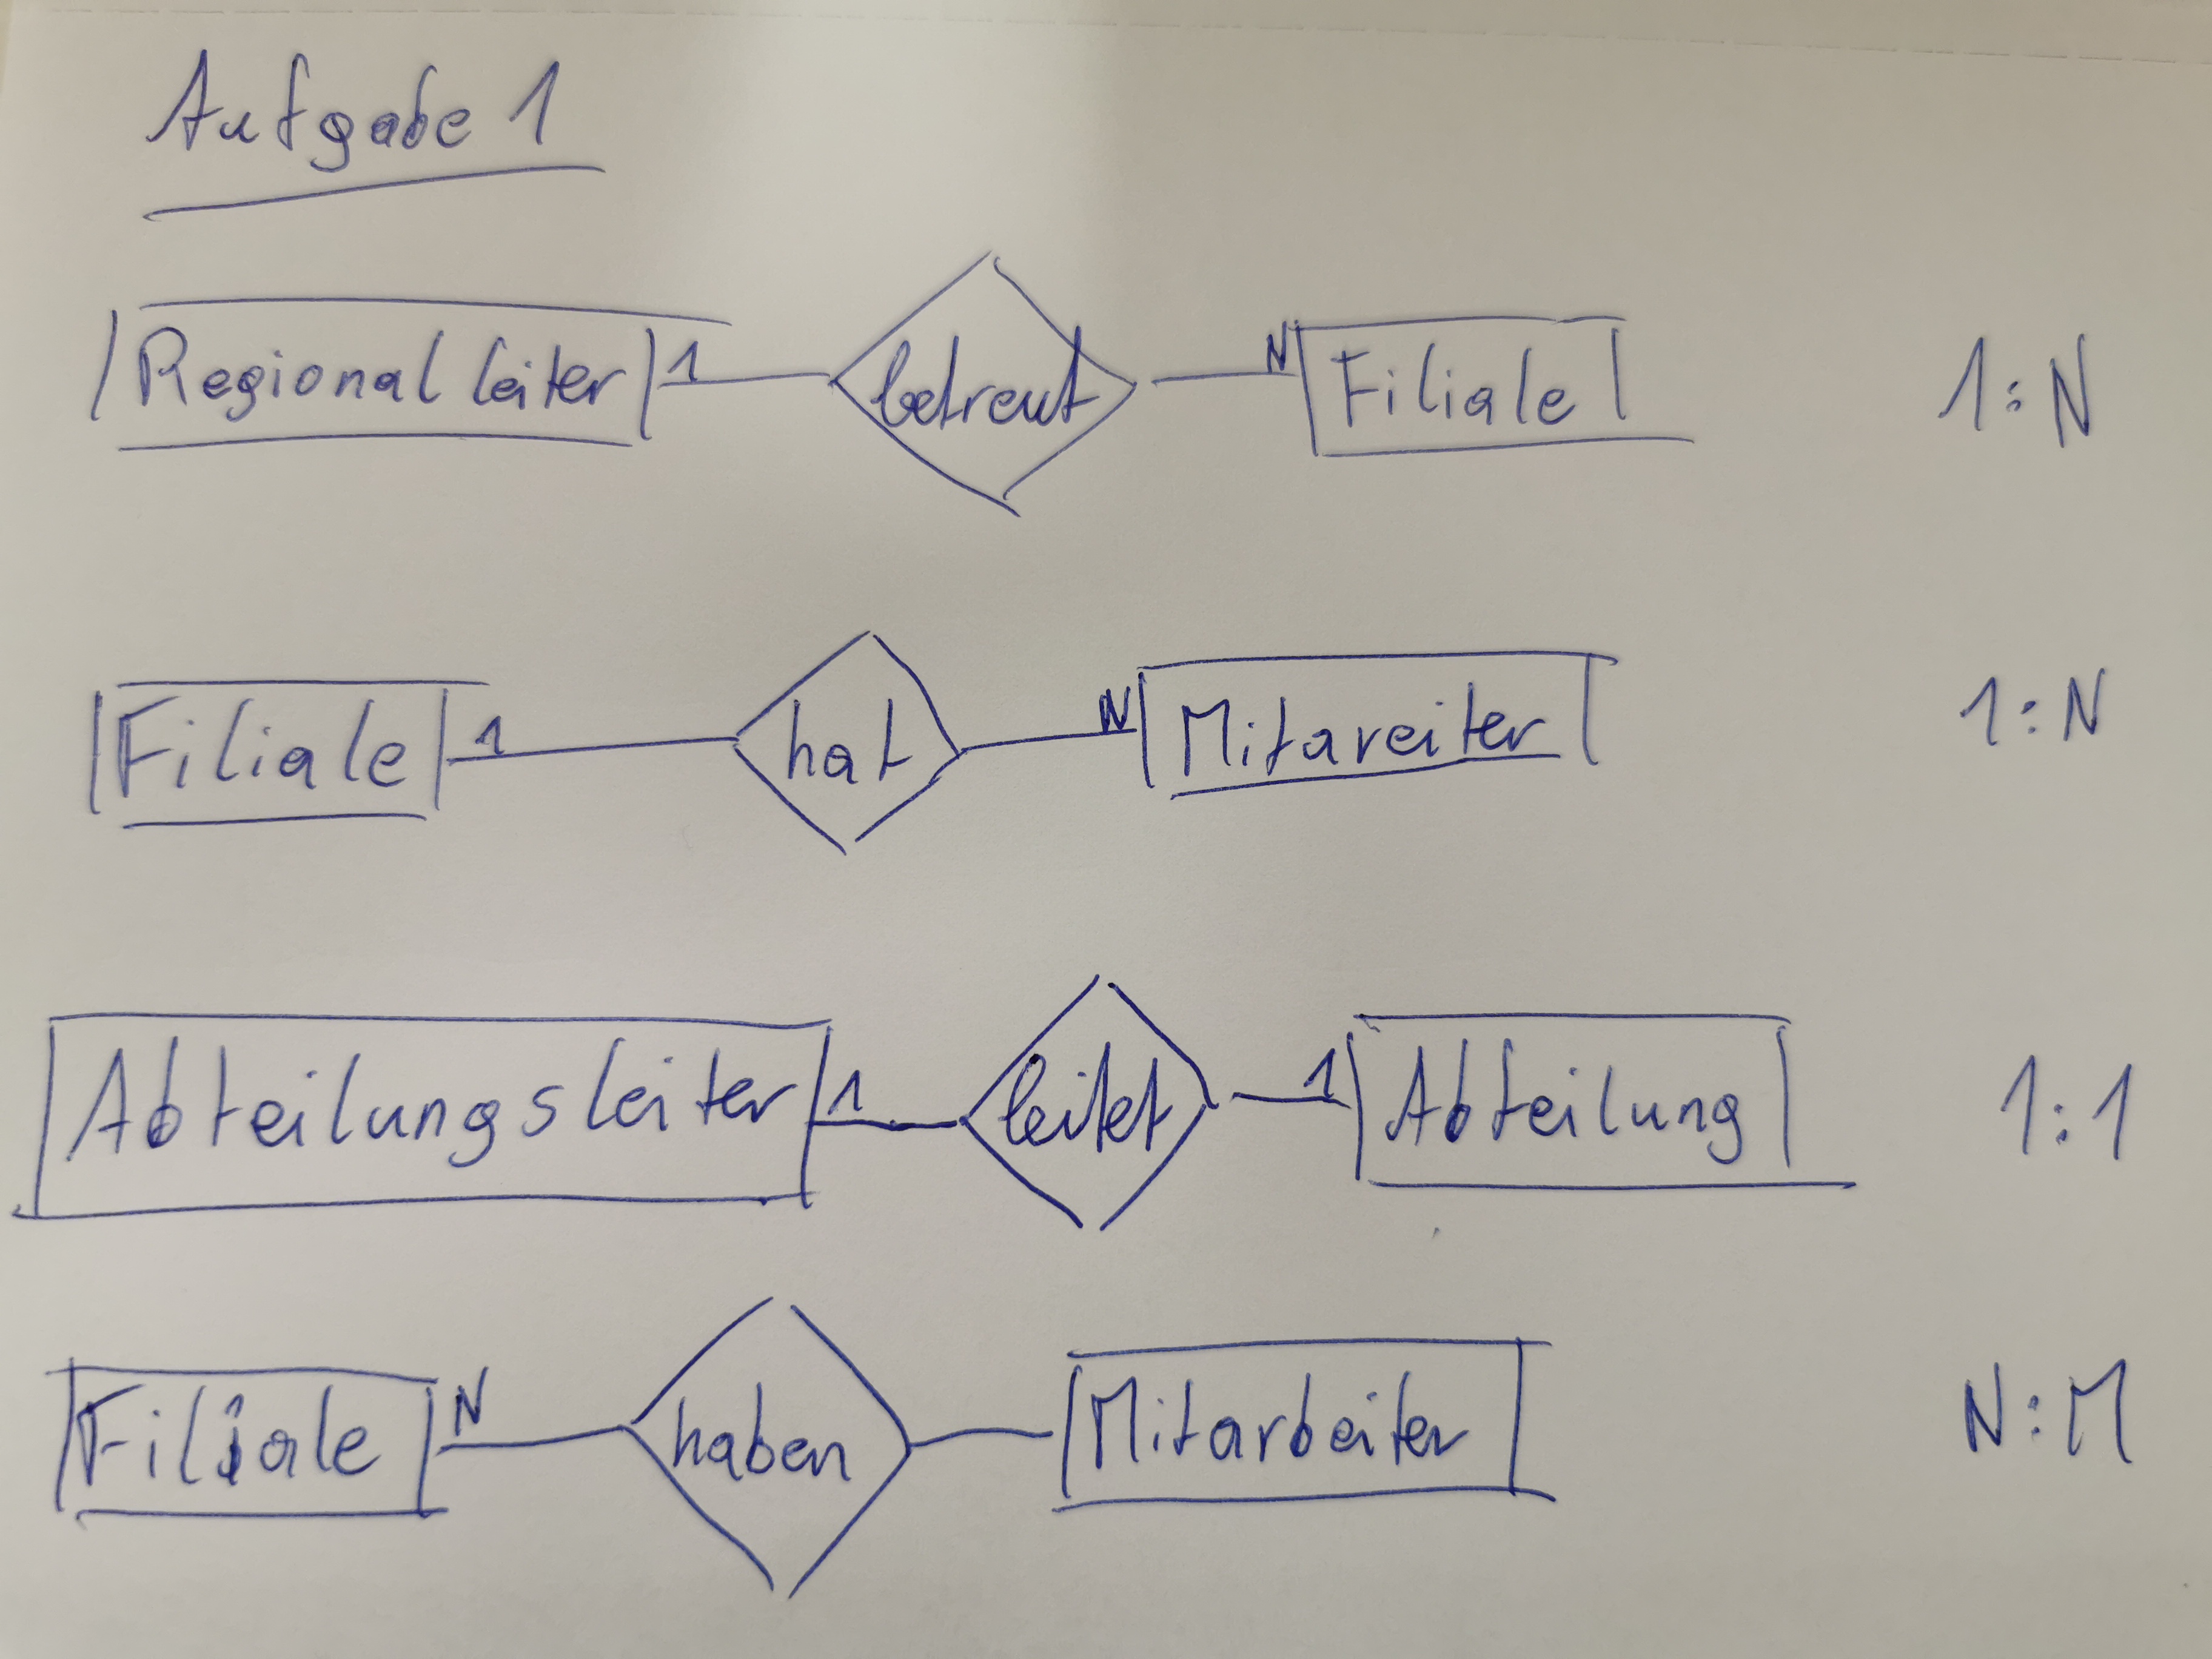 Aufgabe 1
Regionalleiter 1 betreut N Filiale 1:N
Filiale 1 hat N Mitareiter 1:N
Abteilungsleiter 1 leitet 1 Abteilung 1:1
Filiale N haben Mitarbeiter N:M